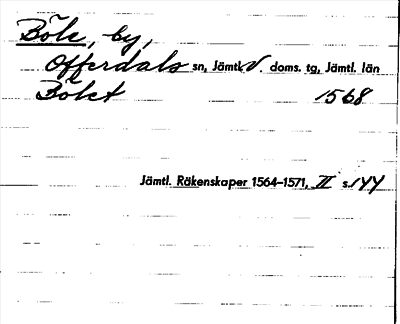 Böle, by,
Offerdals sn, Jämtl. V. doms. tg, Jämtl. län
Bölet 1568
Jämtl. Räkenskaper 1564–1571, II s. 144